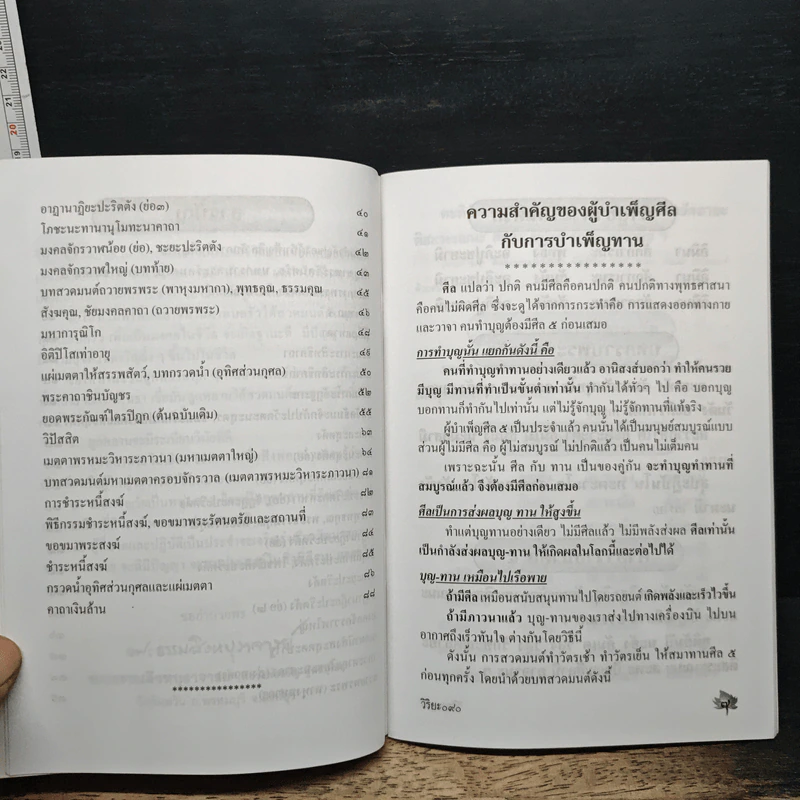 อาฏานาฏิยะปะริตตัง (ย่อ๓) ๔๐
โภชะนะทานานุโมทะนาคาถา ๔๑
มงคลจักรวาฬน้อย (ย่อ), ชะยะปะริตตัง ๔๒
มงคลจักรวาฬใหญ่ (บทท้าย) ๔๓
บทสวดมนต์ถวายพรพระ (พาหุงมหากา), พุทธคุณ, ธรรมคุณ ๔๕
สังฆคุณ, ชัยมงคลคาถา (ถวายพรพระ) ๔๖
มหาการุณิโก ๔๘
อิติปิโสเท่าอายุ ๔๙
แผ่เมตตาให้สรรพสัตว์, บทกรวดน้ำ (อุทิศส่วนกุศล) ๕๐
พระคาถาชินบัญชร ๕๒
ยอดพระกัณฑ์ไตรปิฎก (ต้นฉบับเดิม) ๕๕
วิปัสสิต ๖๓
เมตตาพรหมะวิหาระภาวนา (มหาเมตตาใหญ่) ๖๔
บทสวดมนต์มหาเมตตาครอบจักรวาล (เมตตาพรหมะวิหาระภาวนา) ๘๑
การชำระหนี้สงฆ์ ๘๒
พิธีกรรมชำระหนี้สงฆ์, ขอขมาพระรัตนตรัยและสถานที่ ๘๓
ขอขมาพระสงฆ์ ๘๔
ชำระหนี้สงฆ์ ๘๕
กรวดน้ำอุทิศส่วนกุศลและแผ่เมตตา ๘๖
คาถาเงินล้าน ๘๘
****************
ความสำคัญของผู้บำเพ็ญศีล
กับการบำเพ็ญทาน
****************
ศีล แปลว่า ปกติ คนมีศีลคือคนปกติ คนปกติทางพุทธศาสนา
คือคนไม่ผิดศีล ซึ่งจะดูได้จากการกระทำคือ การแสดงออกทางกาย
และวาจา คนทำบุญต้องมีศีล ๕ ก่อนเสมอ
การทำบุญนั้น แยกกันดังนี้ คือ
คนที่ทำบุญทำทานอย่างเดียวแล้ว อานิสงส์บอกว่า ทำให้คนรวย
มีบุญ มีทานที่ทำเป็นขั้นต่ำเท่านั้น ทำกันได้ทั่วๆ ไป คือ บอกบุญ
บอกทานก็ทำกันไปเท่านั้น แต่ไม่รู้จักบุญ ไม่รู้จักทานที่แท้จริง
ผู้บำเพ็ญศีล ๕ เป็นประจำแล้ว คนนั้นได้เป็นมนุษย์สมบูรณ์แบบ
ส่วนผู้ไม่มีศีล คือ ผู้ไม่สมบูรณ์ ไม่ปกติแล้ว เป็นคนไม่เต็มคน
เพราะฉะนั้น ศีล กับ ทาน เป็นของคู่กัน จะทำบุญทำทานที่
สมบูรณ์แล้ว จึงต้องมีศีลก่อนเสมอ
ศีลเป็นการส่งผลบุญ ทาน ให้สูงขึ้น
ทำแต่บุญทานอย่างเดียว ไม่มีศีลแล้ว ไม่มีพลังส่งผล ศีลเท่านั้น
เป็นกำลังส่งผลบุญ-ทาน ให้เกิดผลในโลกนี้และต่อไปได้
บุญ-ทาน เหมือนไปเรือพาย
ถ้ามีศีล เหมือนสนับสนุนทานไปโดยรถยนต์ เกิดพลังและเร็วไวขึ้น
ถ้ามีภาวนาแล้ว บุญ-ทานของเราส่งไปทางเครื่องบิน ไปบน
อากาศถึงเร็วทันใจ ต่างกันโดยวิธีนี้
ดังนั้น การสวดมนต์ทำวัตรเช้า ทำวัตรเย็น ให้สมาทานศีล ๕
ก่อนทุกครั้ง โดยนำด้วยบทสวดมนต์ดังนี้
วิริยะ๐๙๐